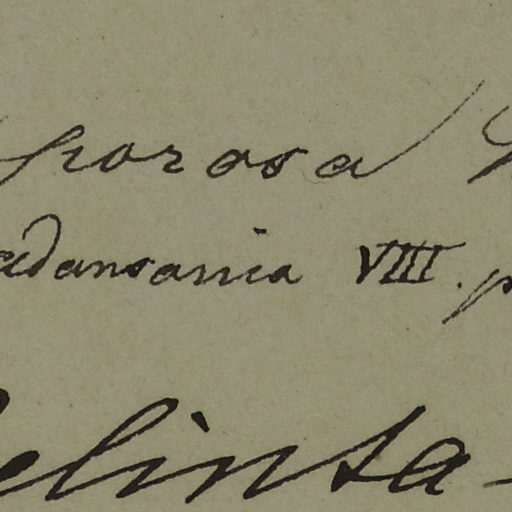 porosa
adansonia VIII. p
elinta